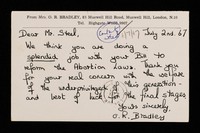 From Mrs. O. R. BRADLEY, 65 Muswell Hill Road, Muswell Hill, London, N.10
Tel.
Dear Mr. Steel, July 2nd. 67
We think you are doing a
splendid job with your Bill to
reform the Abortion Laws. Thank you
for your real concern with the welfare
of the underprivileged of this generation -
and best of luck for the final stages
Yours sincerely,
O. R. Bradley